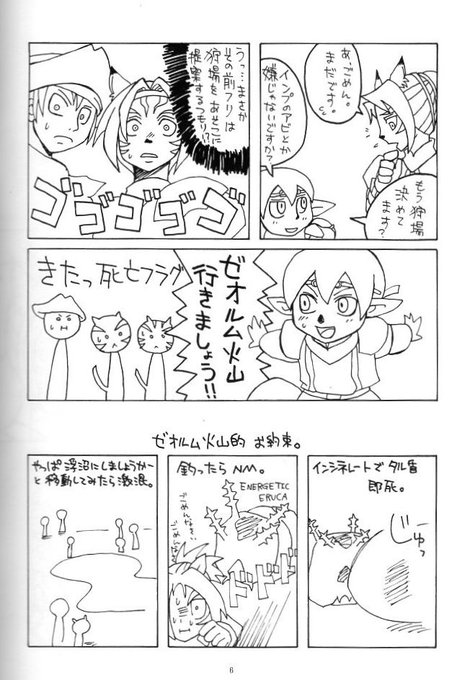 もう狩場
決めて
ます？
あ、ごめん。
まだです。
インプのアビとか
嫌じゃないですか？
うっ…まさか
その前フリは
狩場をあそこに
提案するつもり!?
ゴゴゴゴゴ
ゼオルム火山
行きましょう!!
きたっ死亡フラグ
ゼオルム火山的 お約束。
やっぱ浮沼にしましょうかー
と移動してみたら激混。
釣ったらNM。
ENERGETIC
ERUCA
ごめんなさい
ごめんなさい
ドドドド
インシネレートでタル盾
即死。
じゅっ
6